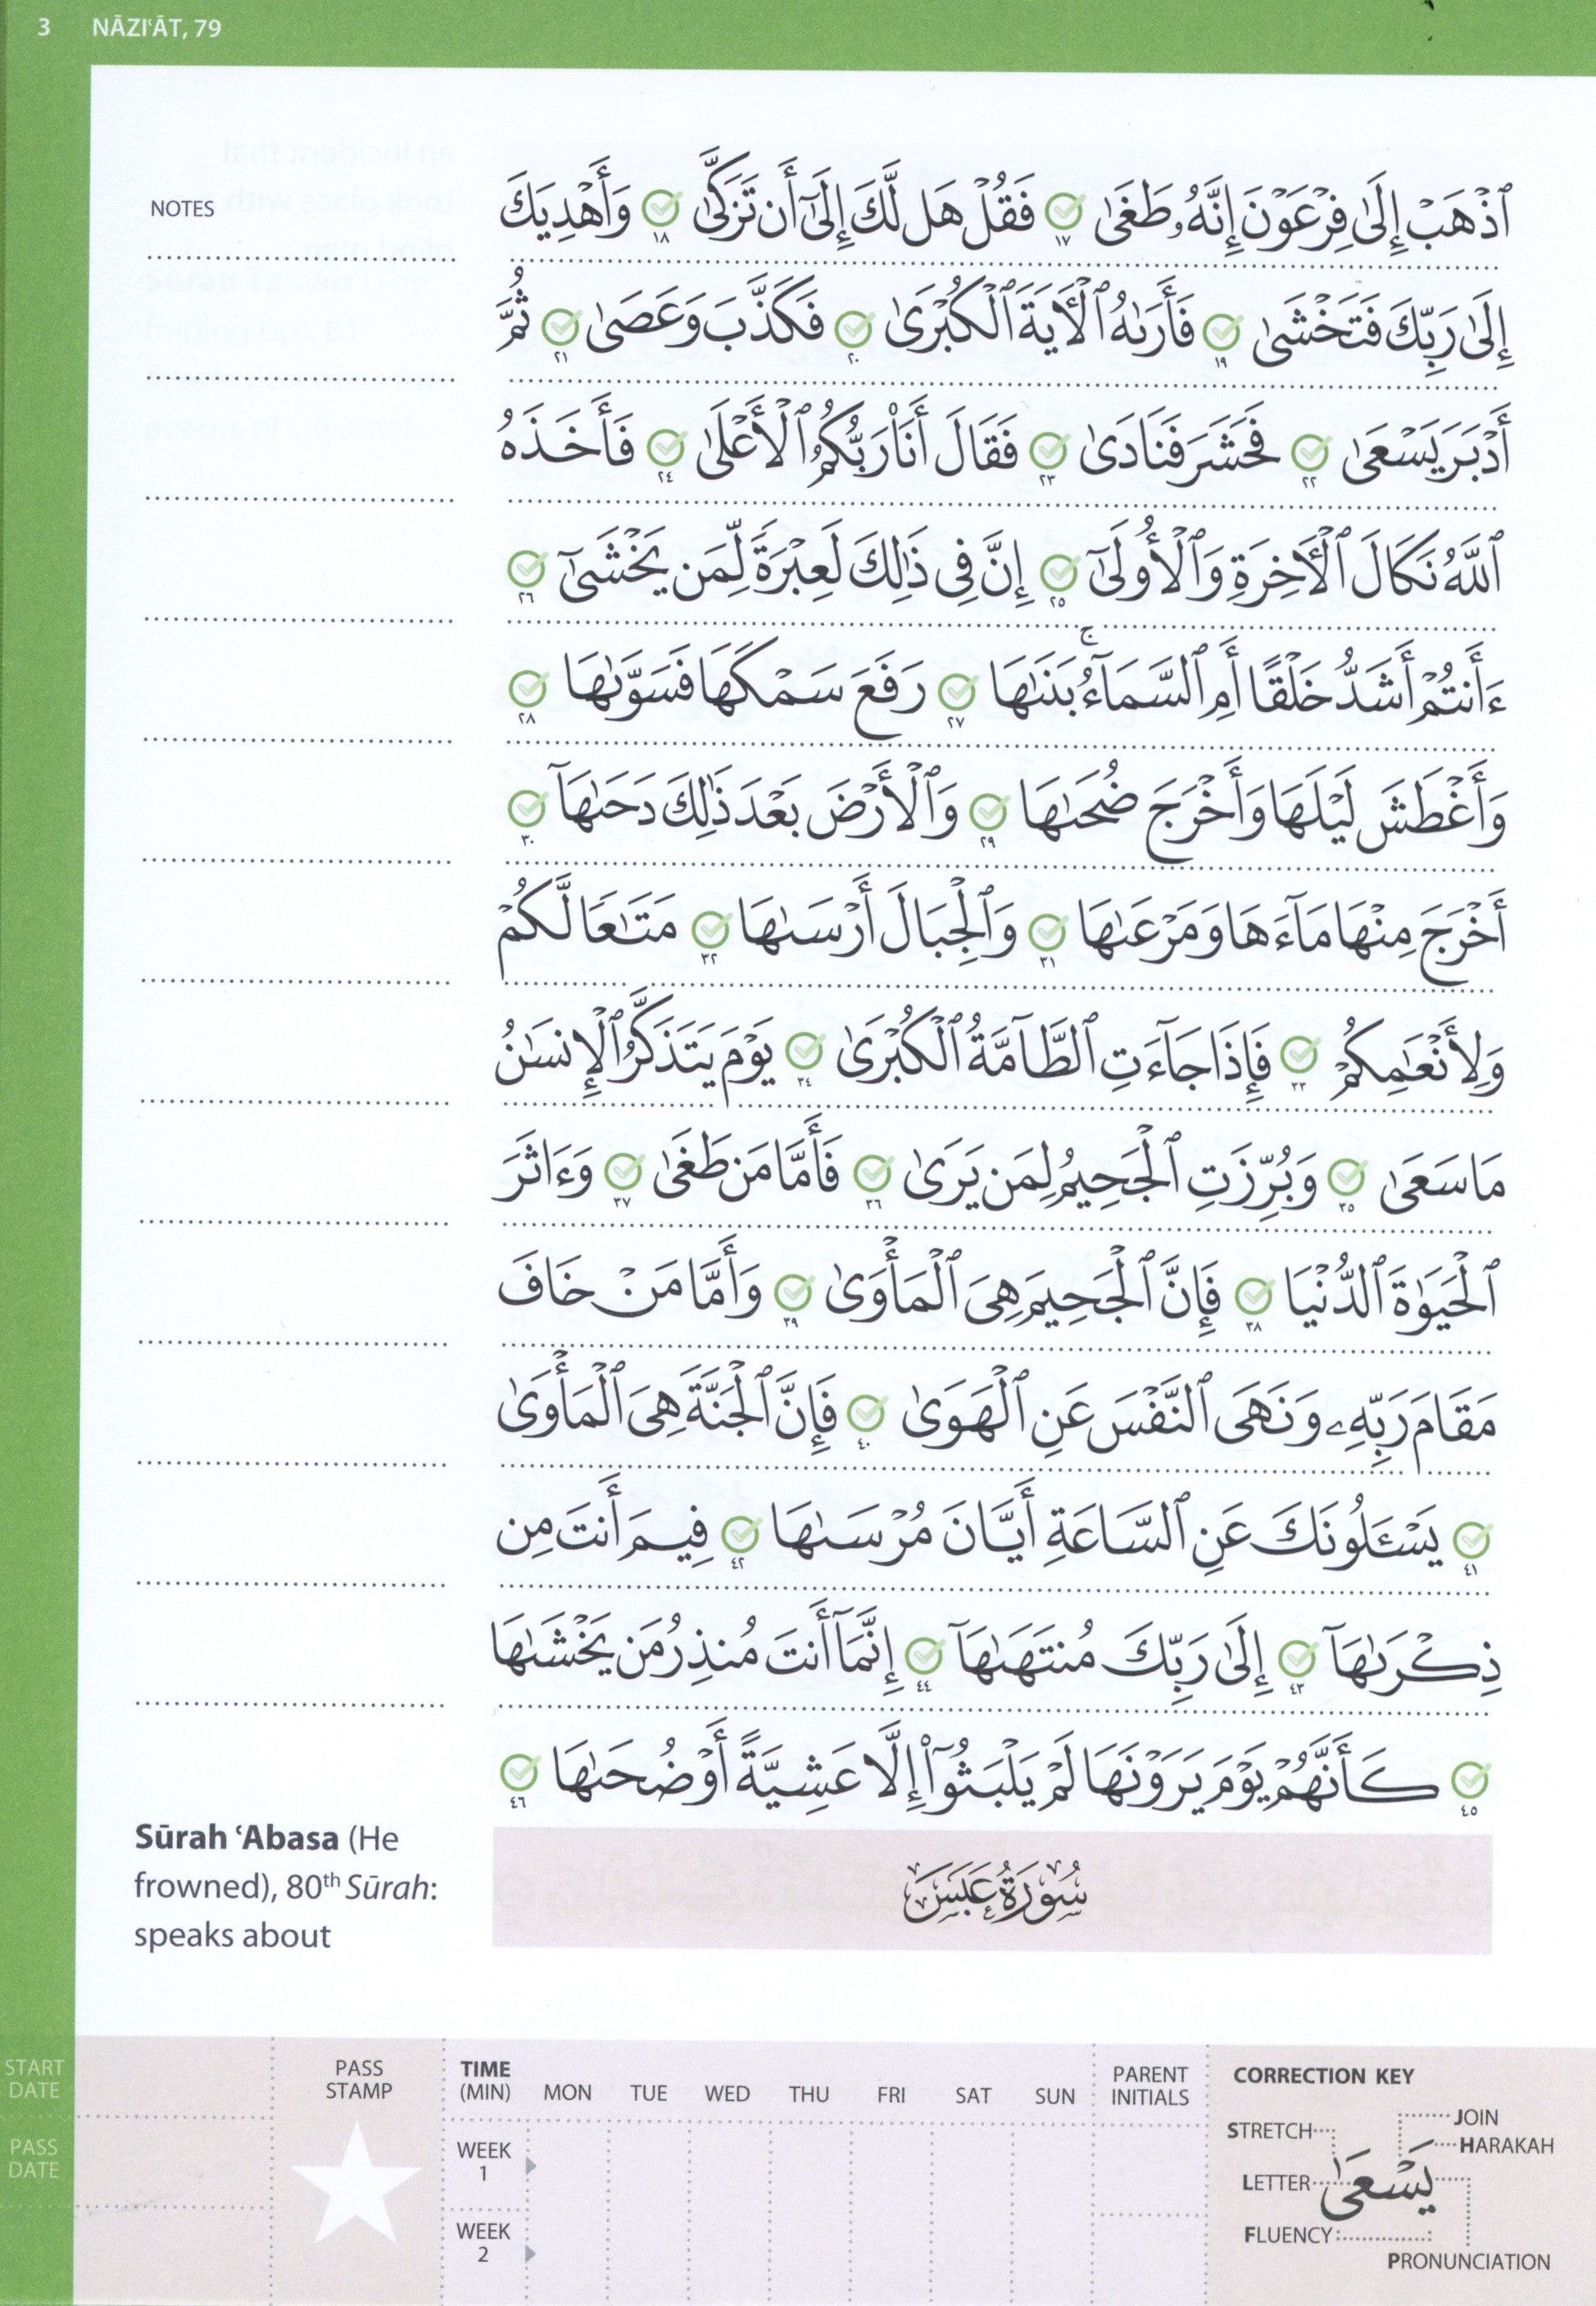 3 NĀZIʿĀT, 79
NOTES
ٱذْهَبْ إِلَىٰ فِرْعَوْنَ إِنَّهُۥ طَغَىٰ ١٧ فَقُلْ هَل لَّكَ إِلَىٰٓ أَن تَزَكَّىٰ ١٨ وَأَهْدِيَكَ
إِلَىٰ رَبِّكَ فَتَخْشَىٰ ١٩ فَأَرَىٰهُ ٱلْـَٔايَةَ ٱلْكُبْرَىٰ ٢٠ فَكَذَّبَ وَعَصَىٰ ٢١ ثُمَّ
أَدْبَرَ يَسْعَىٰ ٢٢ فَحَشَرَ فَنَادَىٰ ٢٣ فَقَالَ أَنَا۠ رَبُّكُمُ ٱلْأَعْلَىٰ ٢٤ فَأَخَذَهُ
ٱللَّهُ نَكَالَ ٱلْـَٔاخِرَةِ وَٱلْأُولَىٰٓ ٢٥ إِنَّ فِى ذَٰلِكَ لَعِبْرَةً لِّمَن يَخْشَىٰٓ ٢٦
ءَأَنتُمْ أَشَدُّ خَلْقًا أَمِ ٱلسَّمَآءُ ۚ بَنَىٰهَا ٢٧ رَفَعَ سَمْكَهَا فَسَوَّىٰهَا ٢٨
وَأَغْطَشَ لَيْلَهَا وَأَخْرَجَ ضُحَىٰهَا ٢٩ وَٱلْأَرْضَ بَعْدَ ذَٰلِكَ دَحَىٰهَآ ٣٠
أَخْرَجَ مِنْهَا مَآءَهَا وَمَرْعَىٰهَا ٣١ وَٱلْجِبَالَ أَرْسَىٰهَا ٣٢ مَتَـٰعًا لَّكُمْ
وَلِأَنْعَـٰمِكُمْ ٣٣ فَإِذَا جَآءَتِ ٱلطَّآمَّةُ ٱلْكُبْرَىٰ ٣٤ يَوْمَ يَتَذَكَّرُ ٱلْإِنسَـٰنُ
مَا سَعَىٰ ٣٥ وَبُرِّزَتِ ٱلْجَحِيمُ لِمَن يَرَىٰ ٣٦ فَأَمَّا مَن طَغَىٰ ٣٧ وَءَاثَرَ
ٱلْحَيَوٰةَ ٱلدُّنْيَا ٣٨ فَإِنَّ ٱلْجَحِيمَ هِىَ ٱلْمَأْوَىٰ ٣٩ وَأَمَّا مَنْ خَافَ
مَقَامَ رَبِّهِۦ وَنَهَى ٱلنَّفْسَ عَنِ ٱلْهَوَىٰ ٤٠ فَإِنَّ ٱلْجَنَّةَ هِىَ ٱلْمَأْوَىٰ
٤١ يَسْـَٔلُونَكَ عَنِ ٱلسَّاعَةِ أَيَّانَ مُرْسَىٰهَا ٤٢ فِيمَ أَنتَ مِن
ذِكْرَىٰهَآ ٤٣ إِلَىٰ رَبِّكَ مُنتَهَىٰهَآ ٤٤ إِنَّمَآ أَنتَ مُنذِرُ مَن يَخْشَىٰهَا
٤٥ كَأَنَّهُمْ يَوْمَ يَرَوْنَهَا لَمْ يَلْبَثُوٓا۟ إِلَّا عَشِيَّةً أَوْ ضُحَىٰهَا ٤٦
Sūrah ʿAbasa (He
frowned), 80th Sūrah:
speaks about
سُورَةُ عَبَسَ
START
DATE
PASS
DATE
PASS
STAMP
TIME
(MIN) MON TUE WED THU FRI SAT SUN
PARENT
INITIALS
WEEK
1
WEEK
2
CORRECTION KEY
STRETCH
JOIN
HARAKAH
LETTER
يَسْعَىٰ
FLUENCY
PRONUNCIATION